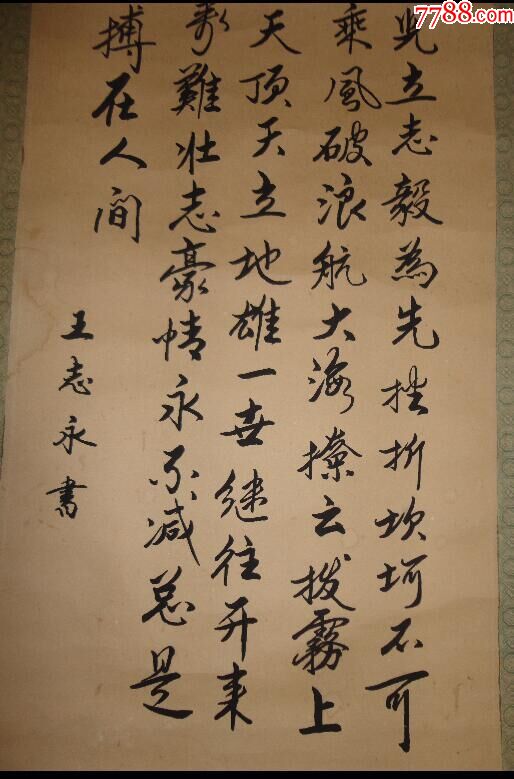 7788.com
兒立志毅為先挫折坎坷不可
乘風破浪航大海撩云拨霧上
天顶天立地雄一世继往开来
難壮志豪情永不减总是
搏在人间
王志永書